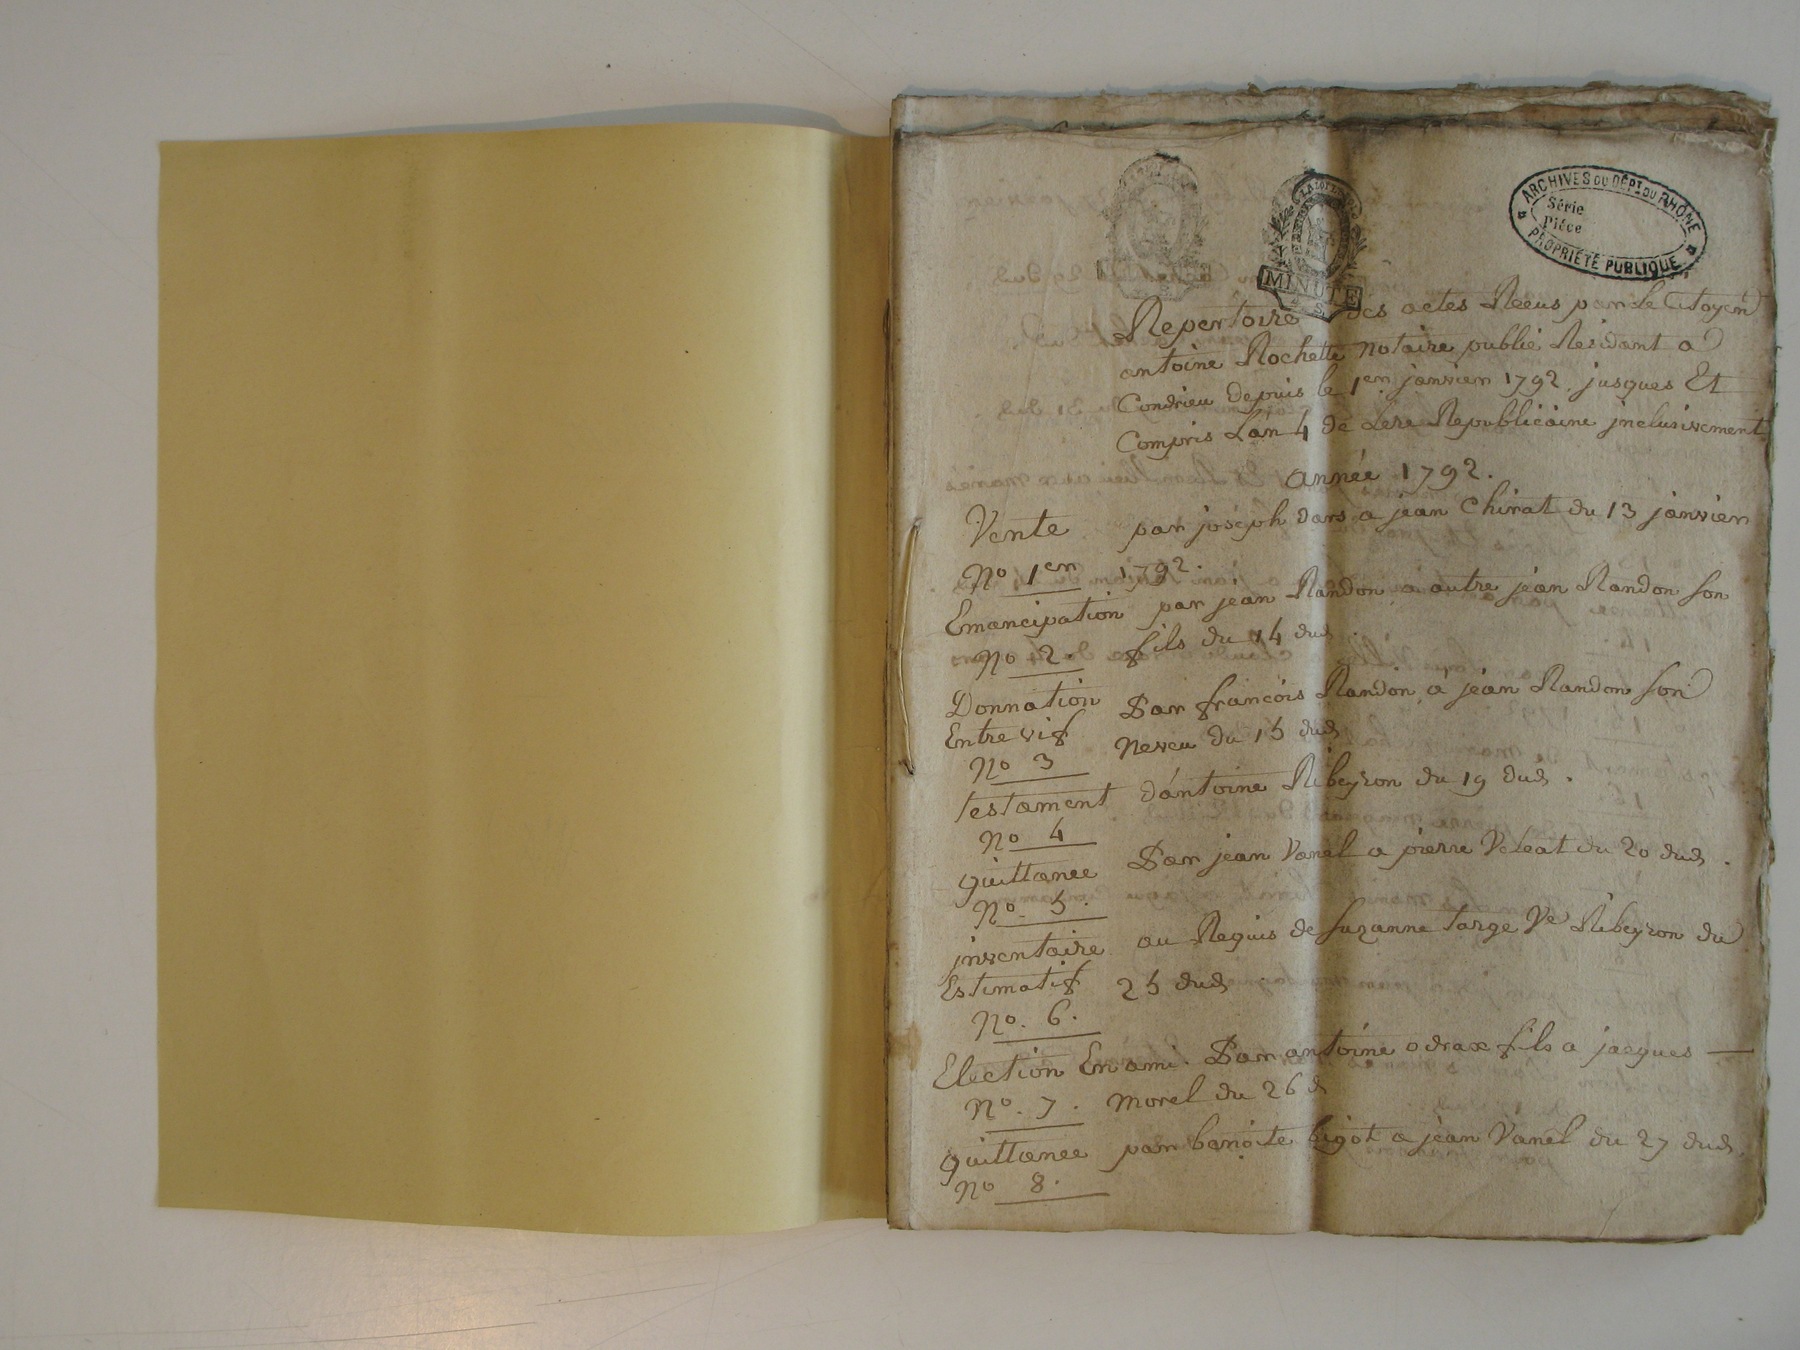 ARCHIVES DU DÉPT DU RHÔNE
Série
Pièce
PROPRIÉTÉ PUBLIQUE
LA LOI
MINUTE
4 S
Repertoire des actes Receus par le Citoyen
antoine Rochette notaire public Residant a
Condrieu depuis le 1er janvier 1792. jusques Et
Compris L'an 4 de Lere Republicaine jnclusivement
année 1792.
Vente par joseph dars a jean Chirat du 13 janvier
No 1er 1792.
Emancipation par jean Randon a autre jean Randon son
No 2. fils du 14 dud.
Donnation Par francois Randon a jean Randon son
Entre vif Neveu du 15 dud
No 3
testament d'antoine Ribeyron du 19 dud.
No 4
quittance Par jean Vanel a pierre du 20 dud.
No. 5.
jnventaire au Requis de suzanne targe Ve Ribeyron du
Estimatif 25 dud
No. 6.
Election En ami. Par antoine fils a jacques
No. 7. morel du 26 d
quittance par benoite bigot a jean Vanel du 27 dud.
No 8.